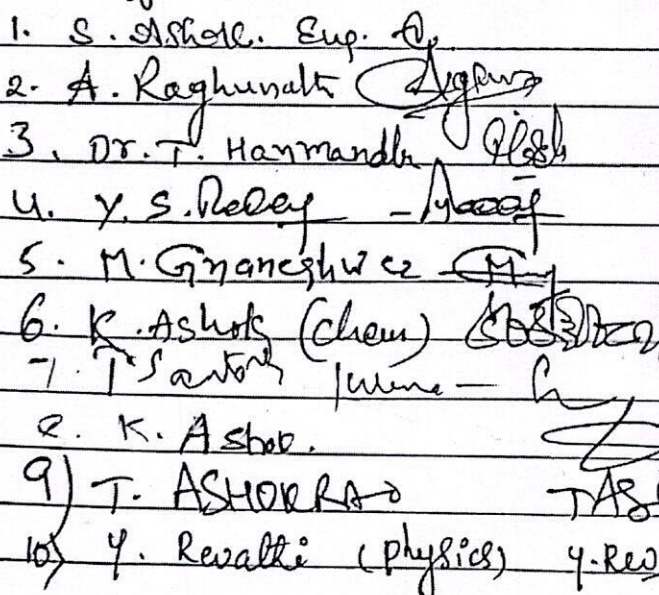 1. S. Ashok. Eng.
2. A. Raghunath
3. Dr. T. Hanmandlu
4. Y. S. Reddy
5. M. Gnaneshwer
6. K. Ashok (chem)
7. T Santosh
8. K. Ashok.
9) T. ASHOK RAO TAS
10) Y. Revathi (physics) Y. Rev